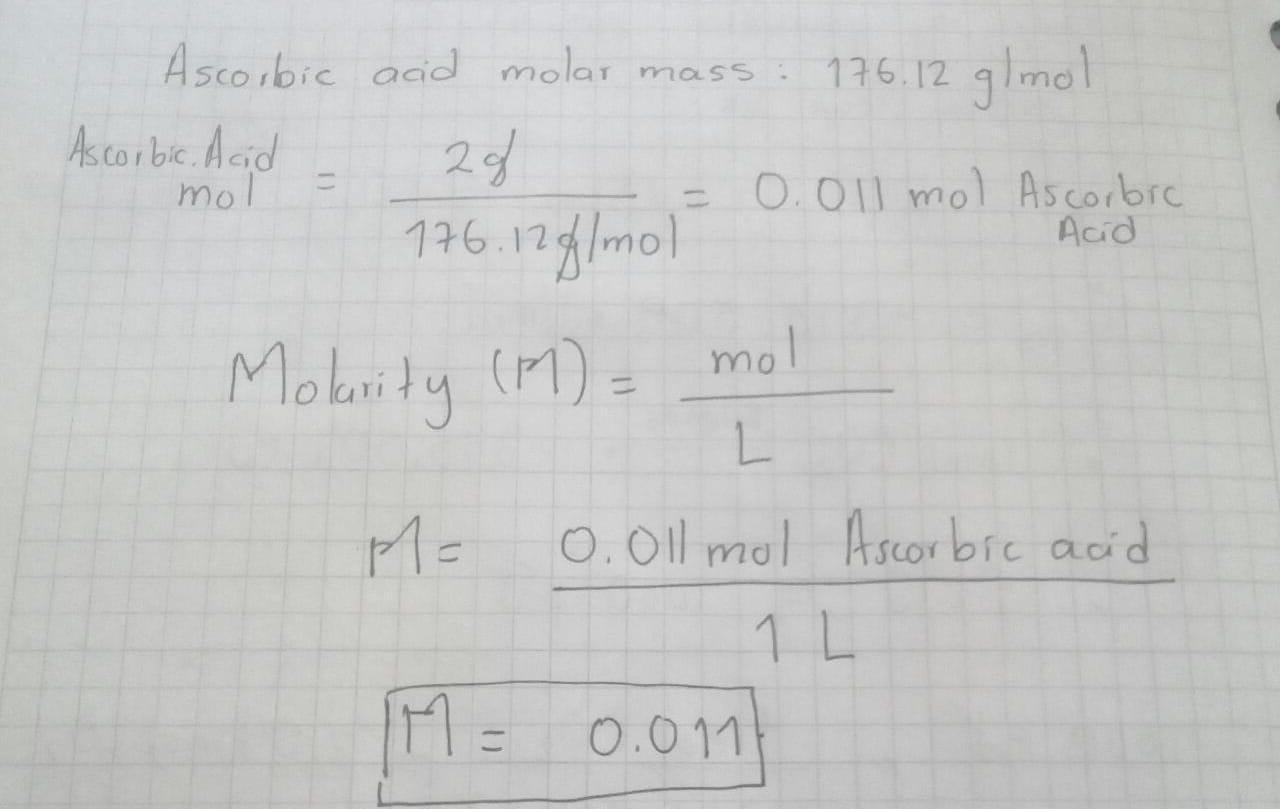 Ascorbic acid molar mass : 176.12 g/mol
Ascorbic. Acid mol = 2g / 176.12g/mol = 0.011 mol Ascorbic Acid
Molarity (M) = mol / L
M = 0.011 mol Ascorbic acid / 1 L
M = 0.011